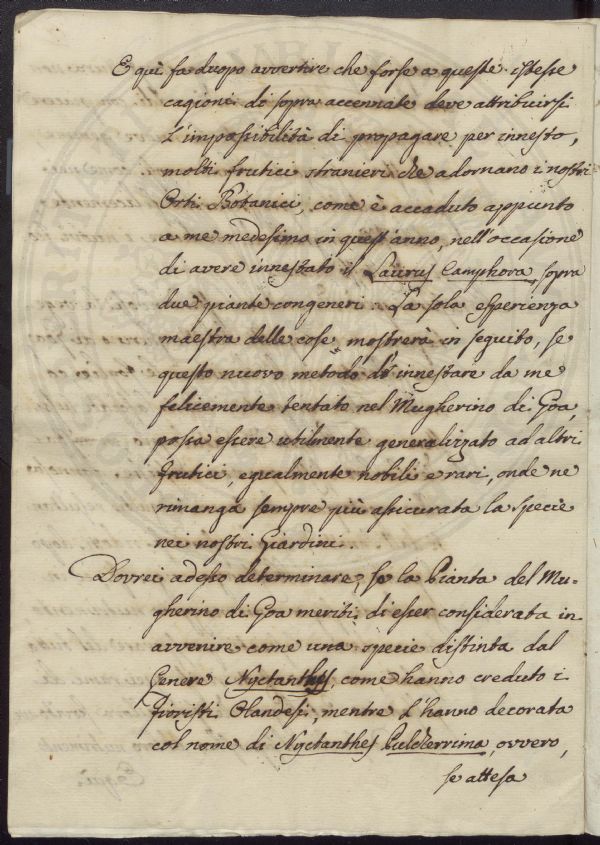 E quì fa duopo avvertire che forse a queste istesse
cagioni di sopra accennate deve attribuirsi
l'impossibilità di propagare per innesto,
molti frutici stranieri che adornano i nostri
Orti Botanici, come è accaduto appunto
a me medesimo in quest'anno, nell'occasione
di avere innestato il Laurus Camphora, sopra
due piante congeneri. La sola esperienza
maestra delle cose mostrerà in seguito, se
questo nuovo metodo d'innestare da me
felicemente tentato nel Mugherino di Goa,
possa essere utilmente generalizzato ad altri
frutici, egualmente nobili e rari, onde ne
rimanga sempre più assicurata la specie
nei nostri Giardini.
Dovrei adesso determinare, se la Pianta del Mu-
gherino di Goa meriti di esser considerata in
avvenire come una specie distinta dal
Genere Nyctanthes, come hanno creduto i
Fioristi Olandesi, mentre l'hanno decorata
col nome di Nyctanthes Pulcherrima, ovvero,
se attesa